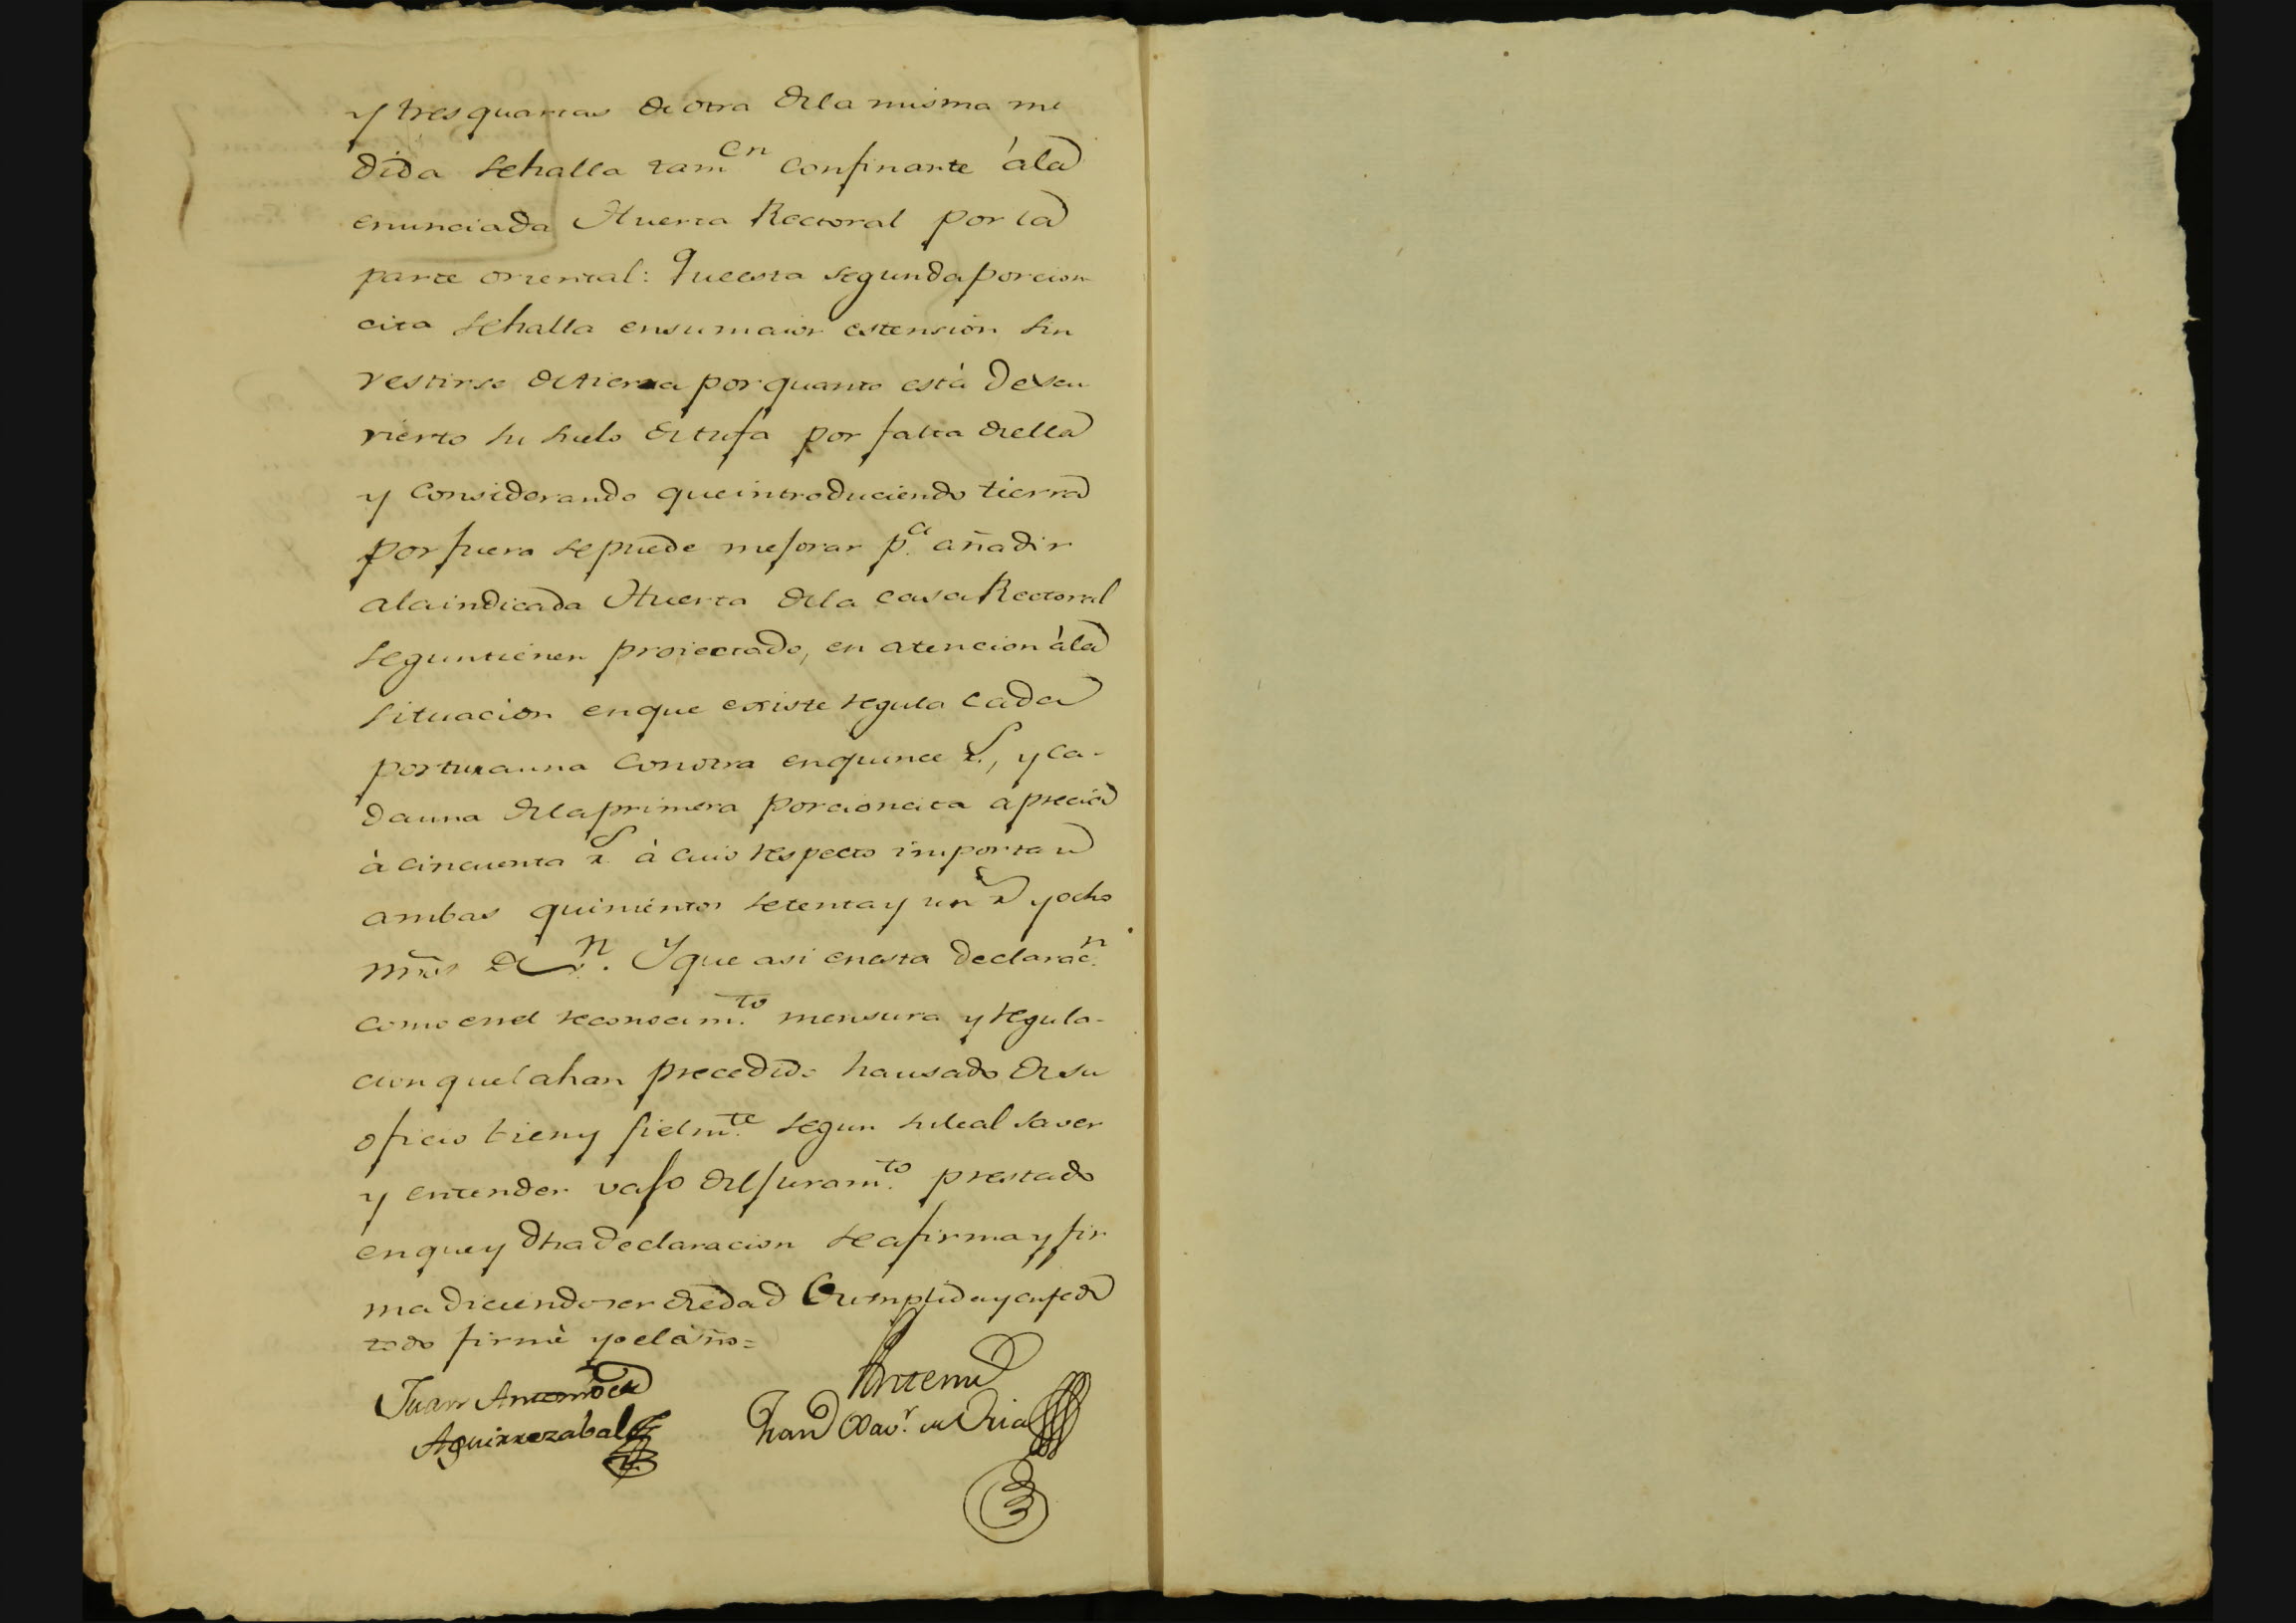 y tres quartas de otra dela misma me
dida sehalla tam.en confinante àla
enunciada Huerta Rectoral por la
parte oriental: Queesta segunda porcion
cita sehalla ensumaior estension sin
vestirse detierra porquanto està descu
vierto su suelo detufa por falta deella
y considerando queintroduciendo tierra
porfuera sepuede mejorar p.a añadir
alaindicada Huerta dela casa Rectoral
seguntienen proiectado, en atencion àla
situacion enque existe regula cada
posturauna conotra enquince r.s, y ca-
dauna delaprimera porcioncita aprecia
à cincuenta r.s à cuio respecto importan
ambas quinientos setentay un r.s y ocho
mrs de v.n. Yque asi enesta declarac.n
como enel reconocim.to mensura y regula-
cion quelahan precedido hausado desu
oficio bieny fielm.te segun suleal saver
y entender vajo deljuram.to prestado
enquey dha declaracion seafirmay fir
ma diciendoser deedad cumplida yenfeede
todo firmè yoelèsno=
Juan Antonio de
Aguirrezabal
Antemi
Juan Xav.r de Oria